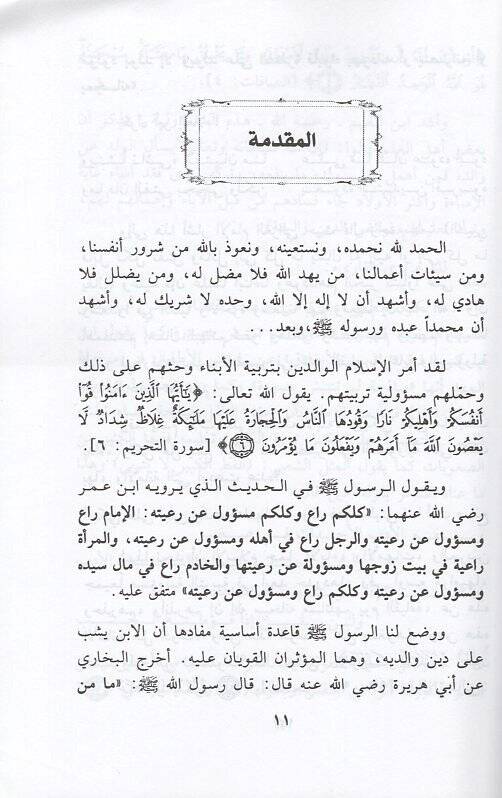 المقدمة
الحمد لله نحمده، ونستعينه، ونعوذ بالله من شرور أنفسنا،
ومن سيئات أعمالنا، من يهد الله فلا مضل له، ومن يضلل فلا
هادي له، وأشهد أن لا إله إلا الله، وحده لا شريك له، وأشهد
أن محمداً عبده ورسوله ﷺ،وبعد...
لقد أمر الإسلام الوالدين بتربية الأبناء وحثهم على ذلك
وحمّلهم مسؤولية تربيتهم. يقول الله تعالى: ﴿يَٰٓأَيُّهَا ٱلَّذِينَ ءَامَنُوا۟ قُوٓا۟
أَنفُسَكُمْ وَأَهْلِيكُمْ نَارًا وَقُودُهَا ٱلنَّاسُ وَٱلْحِجَارَةُ عَلَيْهَا مَلَٰٓئِكَةٌ غِلَاظٌ شِدَادٌ لَّا
يَعْصُونَ ٱللَّهَ مَآ أَمَرَهُمْ وَيَفْعَلُونَ مَا يُؤْمَرُونَ ٦﴾ [سورة التحريم: ٦].
ويقول الرسول ﷺ في الحديث الذي يرويه ابن عمر
رضي الله عنهما: «كلكم راع وكلكم مسؤول عن رعيته: الإمام راع
ومسؤول عن رعيته والرجل راع في أهله ومسؤول عن رعيته، والمرأة
راعية في بيت زوجها ومسؤولة عن رعيتها والخادم راع في مال سيده
ومسؤول عن رعيته وكلكم راع ومسؤول عن رعيته» متفق عليه.
ووضع لنا الرسول ﷺ قاعدة أساسية مفادها أن الابن يشب
على دين والديه، وهما المؤثران القويان عليه. أخرج البخاري
عن أبي هريرة رضي الله عنه قال: قال رسول الله ﷺ: «ما من
١١